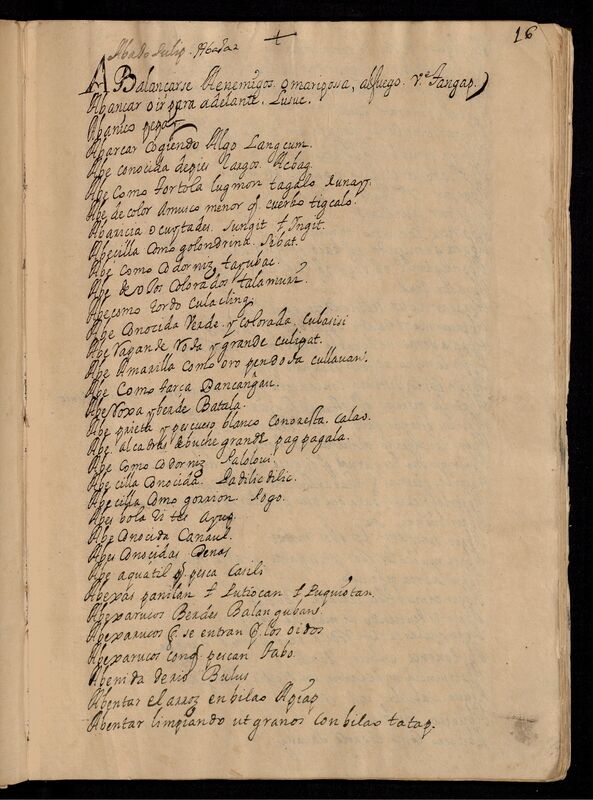 16
Abalançarse Aenemigos. o mariposa, alfuego. Vᵉ Tangap.
Abançar o ir para adelante. Lusuc.
Abanico pepat
Abarcar cogiendo Algo Langcum.
Abe conocida depies Largos. Acbag.
Abe Como tortola lugmon tagalo
Abe de color Amusco menor q̃. cuerbo tigcalo.
Abaricia o cuytades. Sungit t Ingit.
Abecilla Como golondrina. Sibat.
Abe Como Codorniz, tayubac.
Abe de ojos Colorados talamusi
Abe como tordo culacling
Abe Conocida Verde, y colorada. culasisi
Abe grande culipat.
Abe Amarilla como oro pendola cullauan.
Abe Como Garça Dancangau.
Abe Roxa y berde Batala.
Abe prieta y pescueso blanco Conocresta. Calao.
Abe. alcatras debuche grande pagpagala.
Abe Como Codorniz
Abe cilla Conocida. Padilicdilic.
Abe cilla Como gorrion.
Abes
Abe Conocida Canaul.
Abes Conocidas Denas
Abe aquátil q̃. pesca Casili
Abexas panilan t Lutiocan t Puguiotan.
Abexarucos Berdes Balangubans.
Abexarucos q̃. se entran p̃. los oidos
Abexarucos conq̃. pescan tabo.
Abenida de rio Bulus
Abentar el arroz en bilao Apiap
Abentar limpiando ut granos con bilao tatap.